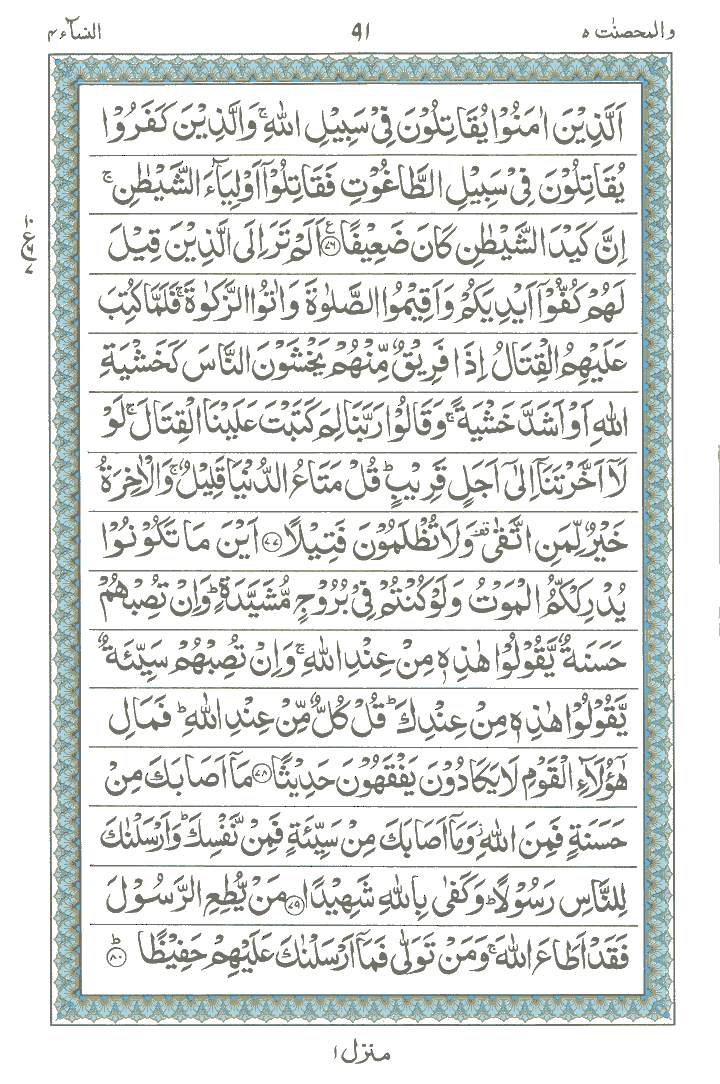 والمحصنٰت ۵ ۹۱ النسآء ۴
اَلَّذِيْنَ اٰمَنُوْا يُقَاتِلُوْنَ فِيْ سَبِيْلِ اللّٰهِ ۚ وَالَّذِيْنَ كَفَرُوْا
يُقَاتِلُوْنَ فِيْ سَبِيْلِ الطَّاغُوْتِ فَقَاتِلُوْۤا اَوْلِيَآءَ الشَّيْطٰنِ ۚ
اِنَّ كَيْدَ الشَّيْطٰنِ كَانَ ضَعِيْفًا ﴿۷۶﴾ اَلَمْ تَرَ اِلَى الَّذِيْنَ قِيْلَ
۱۰ ع ۶ ۷
لَهُمْ كُفُّوْۤا اَيْدِيَكُمْ وَاَقِيْمُوا الصَّلٰوةَ وَاٰتُوا الزَّكٰوةَ ۚ فَلَمَّا كُتِبَ
عَلَيْهِمُ الْقِتَالُ اِذَا فَرِيْقٌ مِّنْهُمْ يَخْشَوْنَ النَّاسَ كَخَشْيَةِ
اللّٰهِ اَوْ اَشَدَّ خَشْيَةً ۚ وَقَالُوْا رَبَّنَا لِمَ كَتَبْتَ عَلَيْنَا الْقِتَالَ ۚ لَوْ
لَاۤ اَخَّرْتَنَاۤ اِلٰۤى اَجَلٍ قَرِيْبٍ ؕ قُلْ مَتَاعُ الدُّنْيَا قَلِيْلٌ ۚ وَالْاٰخِرَةُ
خَيْرٌ لِّمَنِ اتَّقٰى ۫ وَلَا تُظْلَمُوْنَ فَتِيْلًا ﴿۷۷﴾ اَيْنَ مَا تَكُوْنُوْا
يُدْرِكْكُّمُ الْمَوْتُ وَلَوْ كُنْتُمْ فِيْ بُرُوْجٍ مُّشَيَّدَةٍ ؕ وَاِنْ تُصِبْهُمْ
حَسَنَةٌ يَّقُوْلُوْا هٰذِهٖ مِنْ عِنْدِ اللّٰهِ ۚ وَاِنْ تُصِبْهُمْ سَيِّئَةٌ
يَّقُوْلُوْا هٰذِهٖ مِنْ عِنْدِكَ ؕ قُلْ كُلٌّ مِّنْ عِنْدِ اللّٰهِ ؕ فَمَالِ
هٰۤؤُلَآءِ الْقَوْمِ لَا يَكَادُوْنَ يَفْقَهُوْنَ حَدِيْثًا ﴿۷۸﴾ مَاۤ اَصَابَكَ مِنْ
حَسَنَةٍ فَمِنَ اللّٰهِ ۫ وَمَاۤ اَصَابَكَ مِنْ سَيِّئَةٍ فَمِنْ نَّفْسِكَ ؕ وَاَرْسَلْنٰكَ
لِلنَّاسِ رَسُوْلًا ؕ وَكَفٰى بِاللّٰهِ شَهِيْدًا ﴿۷۹﴾ مَنْ يُّطِعِ الرَّسُوْلَ
فَقَدْ اَطَاعَ اللّٰهَ ۚ وَمَنْ تَوَلّٰى فَمَاۤ اَرْسَلْنٰكَ عَلَيْهِمْ حَفِيْظًا ﴿۸۰﴾ ؕ
منزل ۱